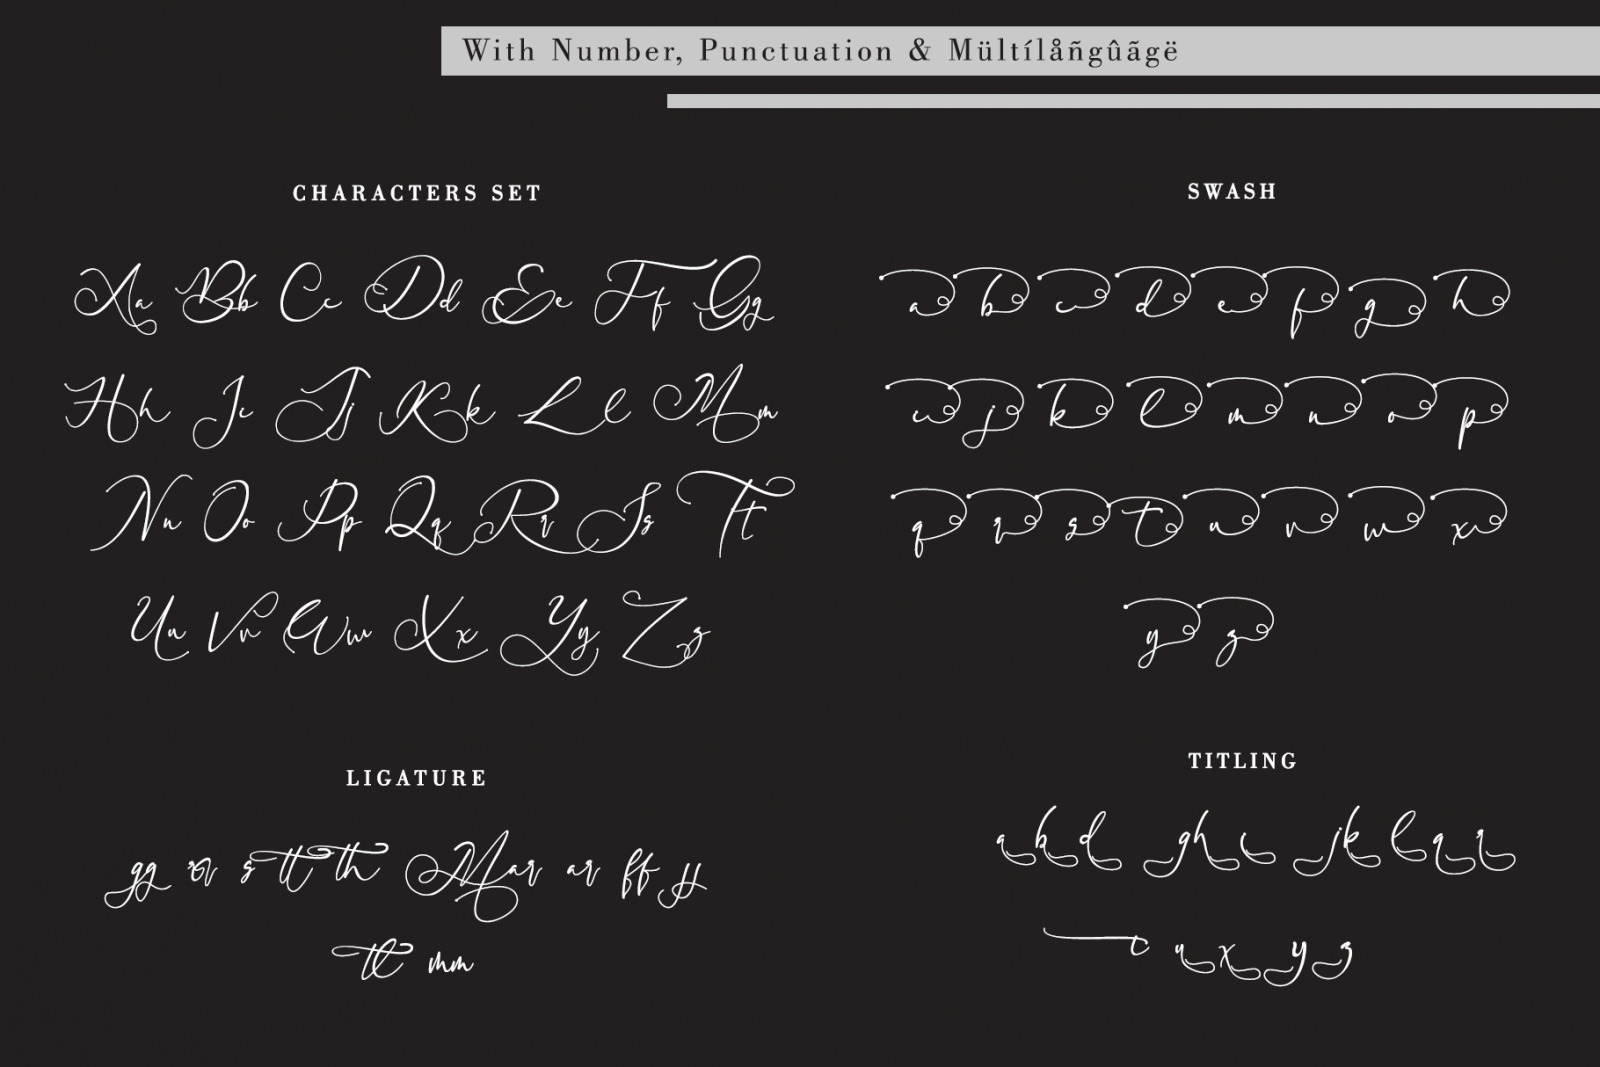 With Number, Punctuation & Mültílåñgûãgë
CHARACTERS SET
Aa Bb Cc Dd Ee Ff Gg
Hh Ii Jj Kk Ll Mm
Nn Oo Pp Qq Rr Ss Tt
Uu Vv Ww Xx Yy Zz
SWASH
a b c d e f g h
i j k l m n o p
q r s t u v w x
y z
LIGATURE
gg or s tt th Mar ar ff jj
tl mm
TITLING
a k d g h i j k l q r
t u x y z